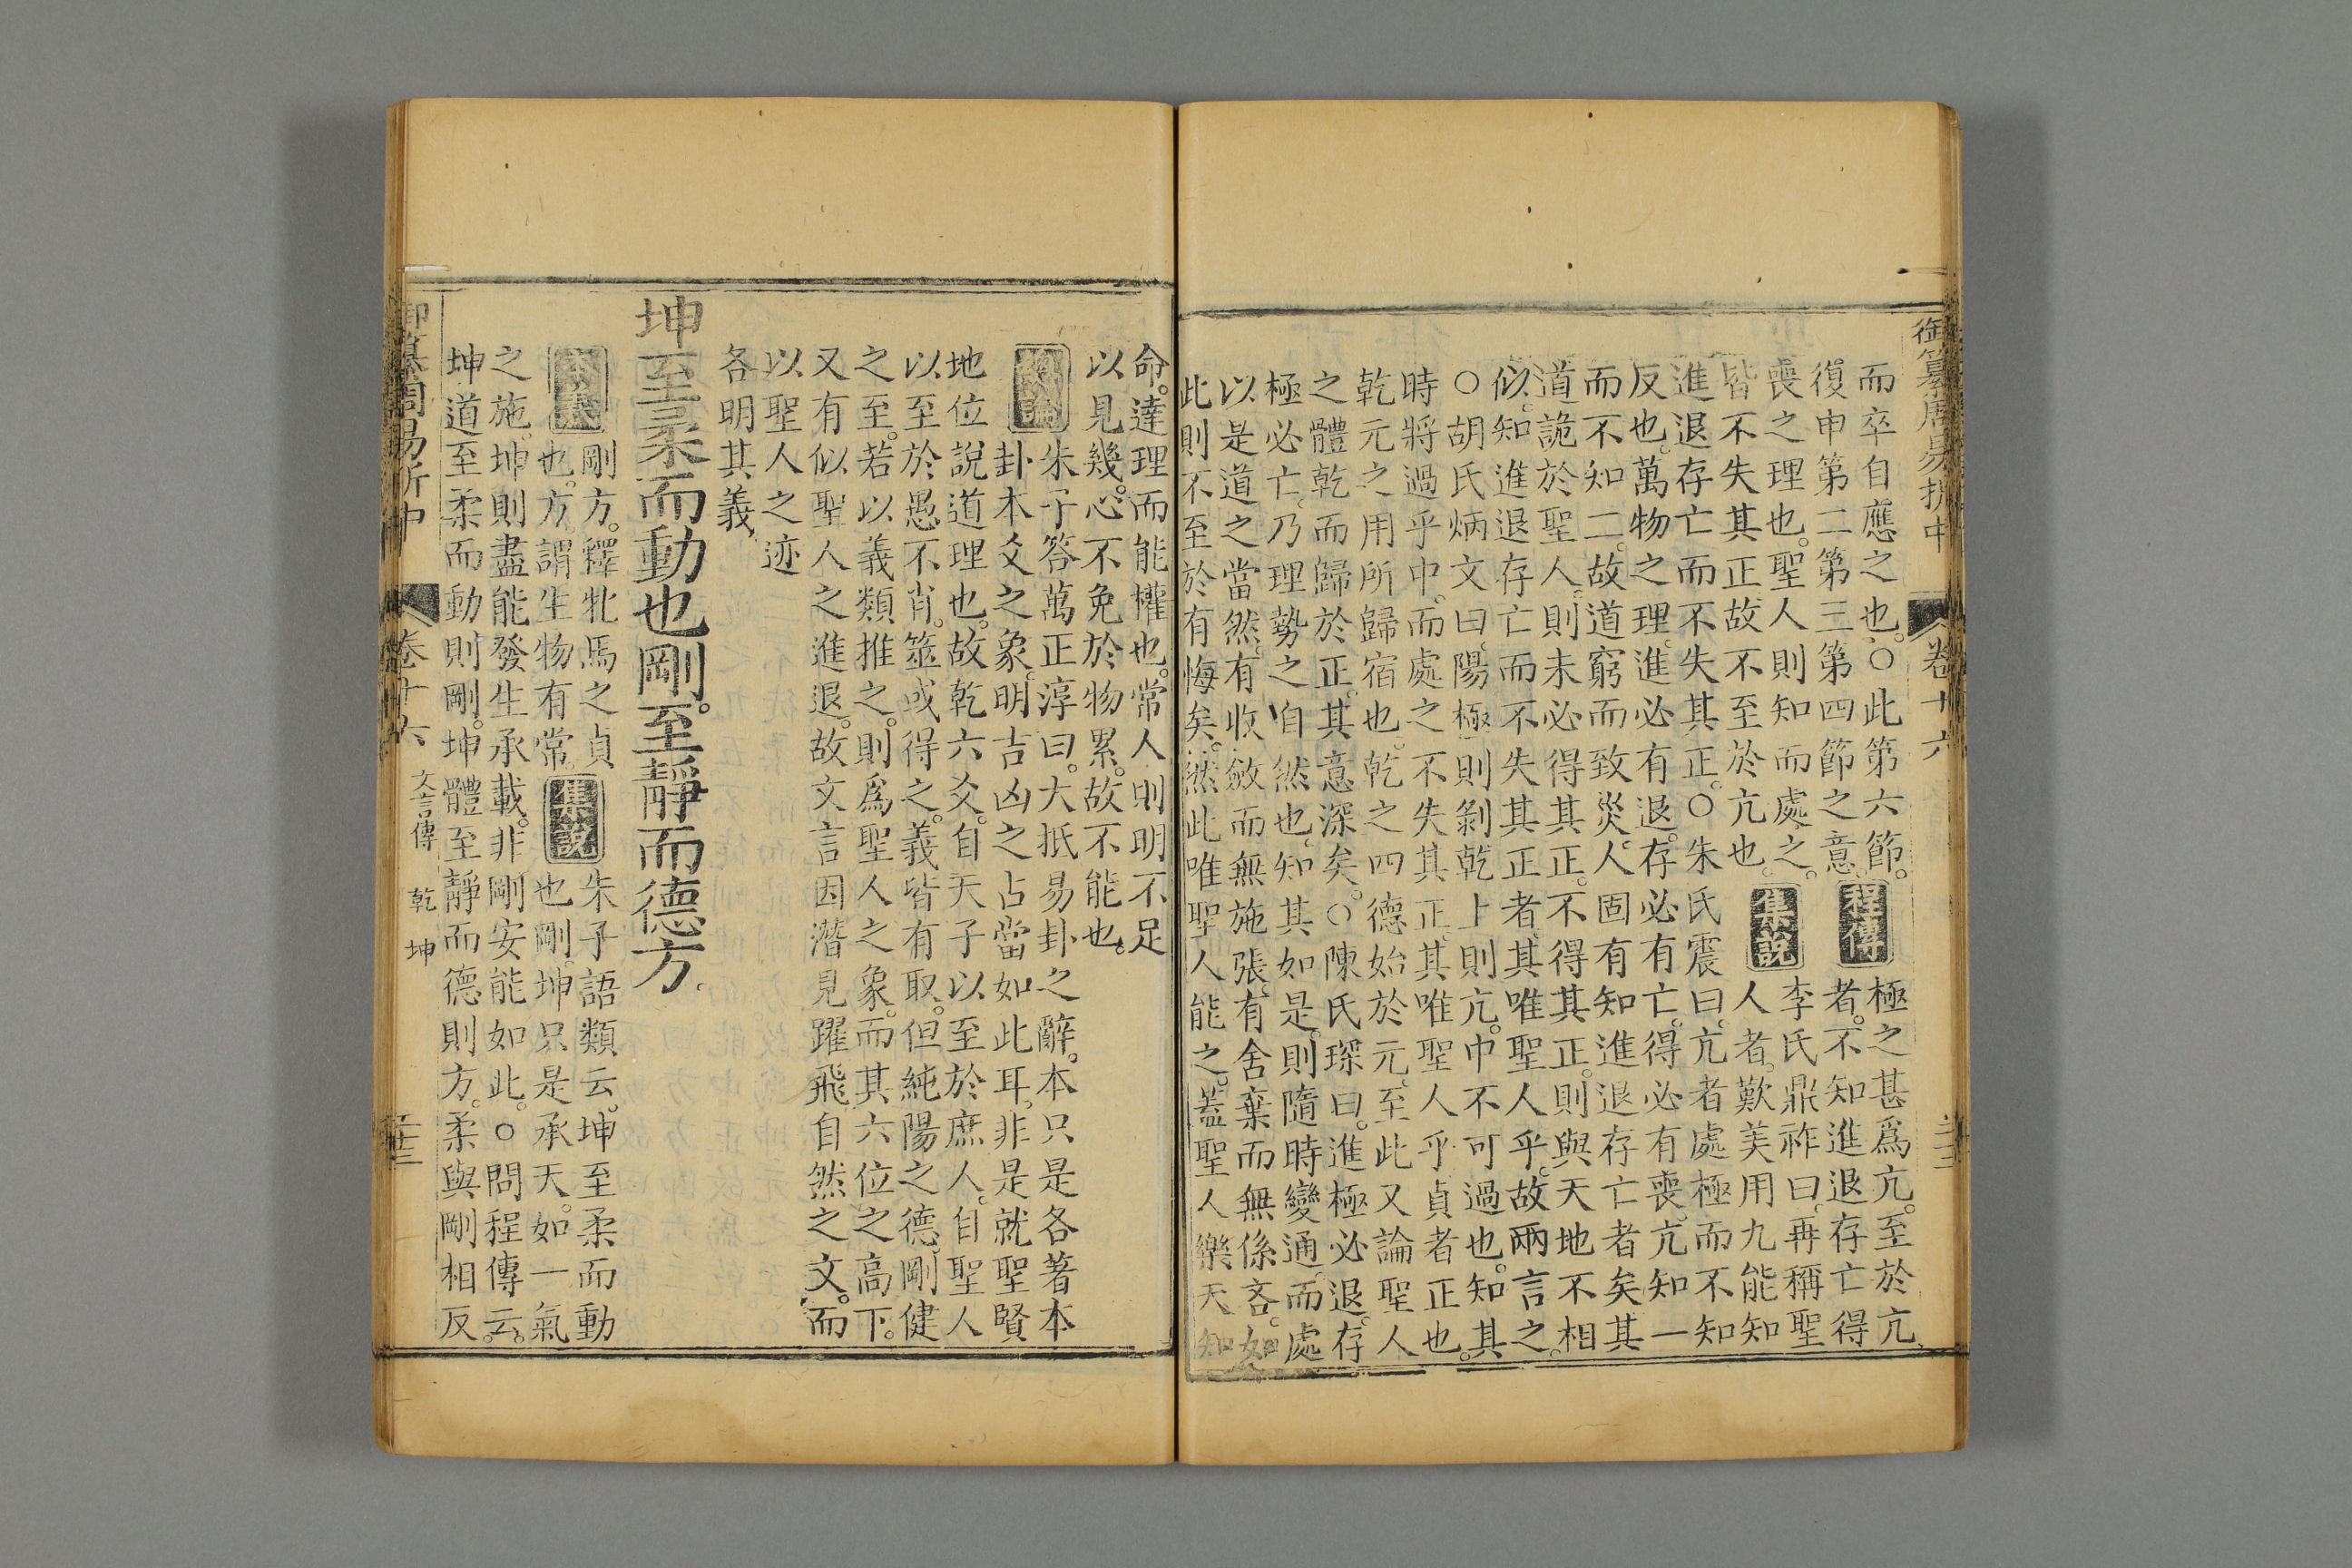 御纂周易折中 卷十六
而卒自應之也。○此第六節。程傳極之甚爲亢。至於亢
復申第二第三第四節之意。者。不知進退存亡得
喪之理也。聖人則知而處之。集說李氏鼎祚曰。再稱聖
皆不失其正。故不至於亢也。人者。歎美用九能知
進退存亡而不失其正。○朱氏震曰。亢者處極而不知
反也。萬物之理。進必有退。存必有亡。得必有喪。亢知一
而不知二。故道窮而致災。人固有知進退存亡者矣。其
道詭於聖人。則未必得其正。不得其正。則與天地不相
似。知進退存亡而不失其正者。其唯聖人乎。故兩言之。
○胡氏炳文曰。陽極則剝。乾上則亢。中不可過也。知其
時將過乎中。而處之不失其正。其唯聖人乎。貞者正也。
乾元之用所歸宿也。乾之四德始於元。至此又論聖人
之體乾而歸於正。其意深矣。○陳氏琛曰。進極必退。存
極必亡。乃理勢之自然也。知其如是。則隨時變通。而處
以是道之當然。有收斂而無施張。有舍棄而無係吝。如
此則不至於有悔矣。然此唯聖人能之。蓋聖人樂天知
命。達理而能權也。常人則明不足
以見幾。心不免於物累。故不能也。
總論朱子答萬正淳曰。大抵易卦之辭。本只是各著本
卦本爻之象。明吉凶之占當如此耳。非是就聖賢
地位說道理也。故乾六爻。自天子以至於庶人。自聖人
以至於愚不肖。筮或得之。義皆有取。但純陽之德。剛健
之至。若以義類推之。則爲聖人之象。而其六位之高下。
又有似聖人之進退。故文言因潛見躍飛自然之文。而
以聖人之迹
各明其義。
坤至柔而動也剛。至靜而德方。
本義剛方。釋牝馬之貞集說朱子語類云。坤至柔而動
也。方。謂生物有常。也剛。坤只是承天。如一氣
之施。坤則盡能發生承載。非剛安能如此。○問程傳云。
坤道至柔而動則剛。坤體至靜而德則方。柔與剛相反。
御纂周易折中 卷十六 文言傳 乾 坤